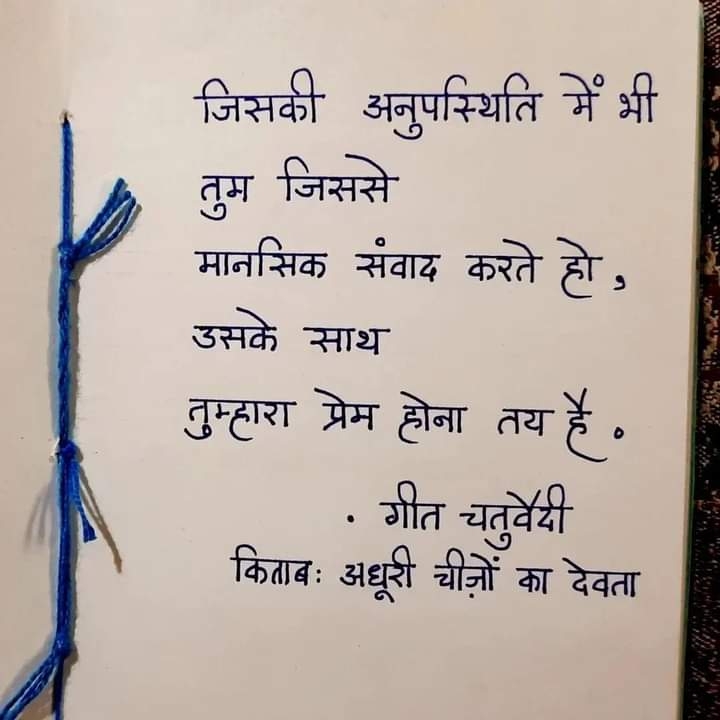 जिसकी अनुपस्थिति में भी
तुम जिससे
मानसिक संवाद करते हो,
उसके साथ
तुम्हारा प्रेम होना तय है.
. गीत चतुर्वेदी
किताब: अधूरी चीज़ों का देवता